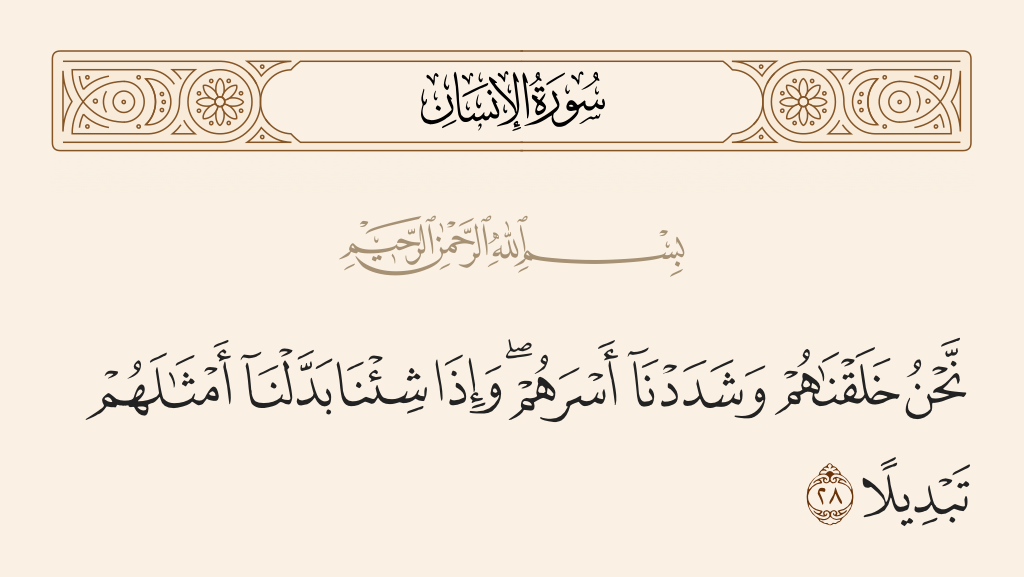 سُورَةُ الإِنسَانِ
بِسْمِ ٱللَّهِ ٱلرَّحْمَٰنِ ٱلرَّحِيمِ
نَّحْنُ خَلَقْنَٰهُمْ وَشَدَدْنَآ أَسْرَهُمْ ۖ وَإِذَا شِئْنَا بَدَّلْنَآ أَمْثَٰلَهُمْ
تَبْدِيلًا ٢٨